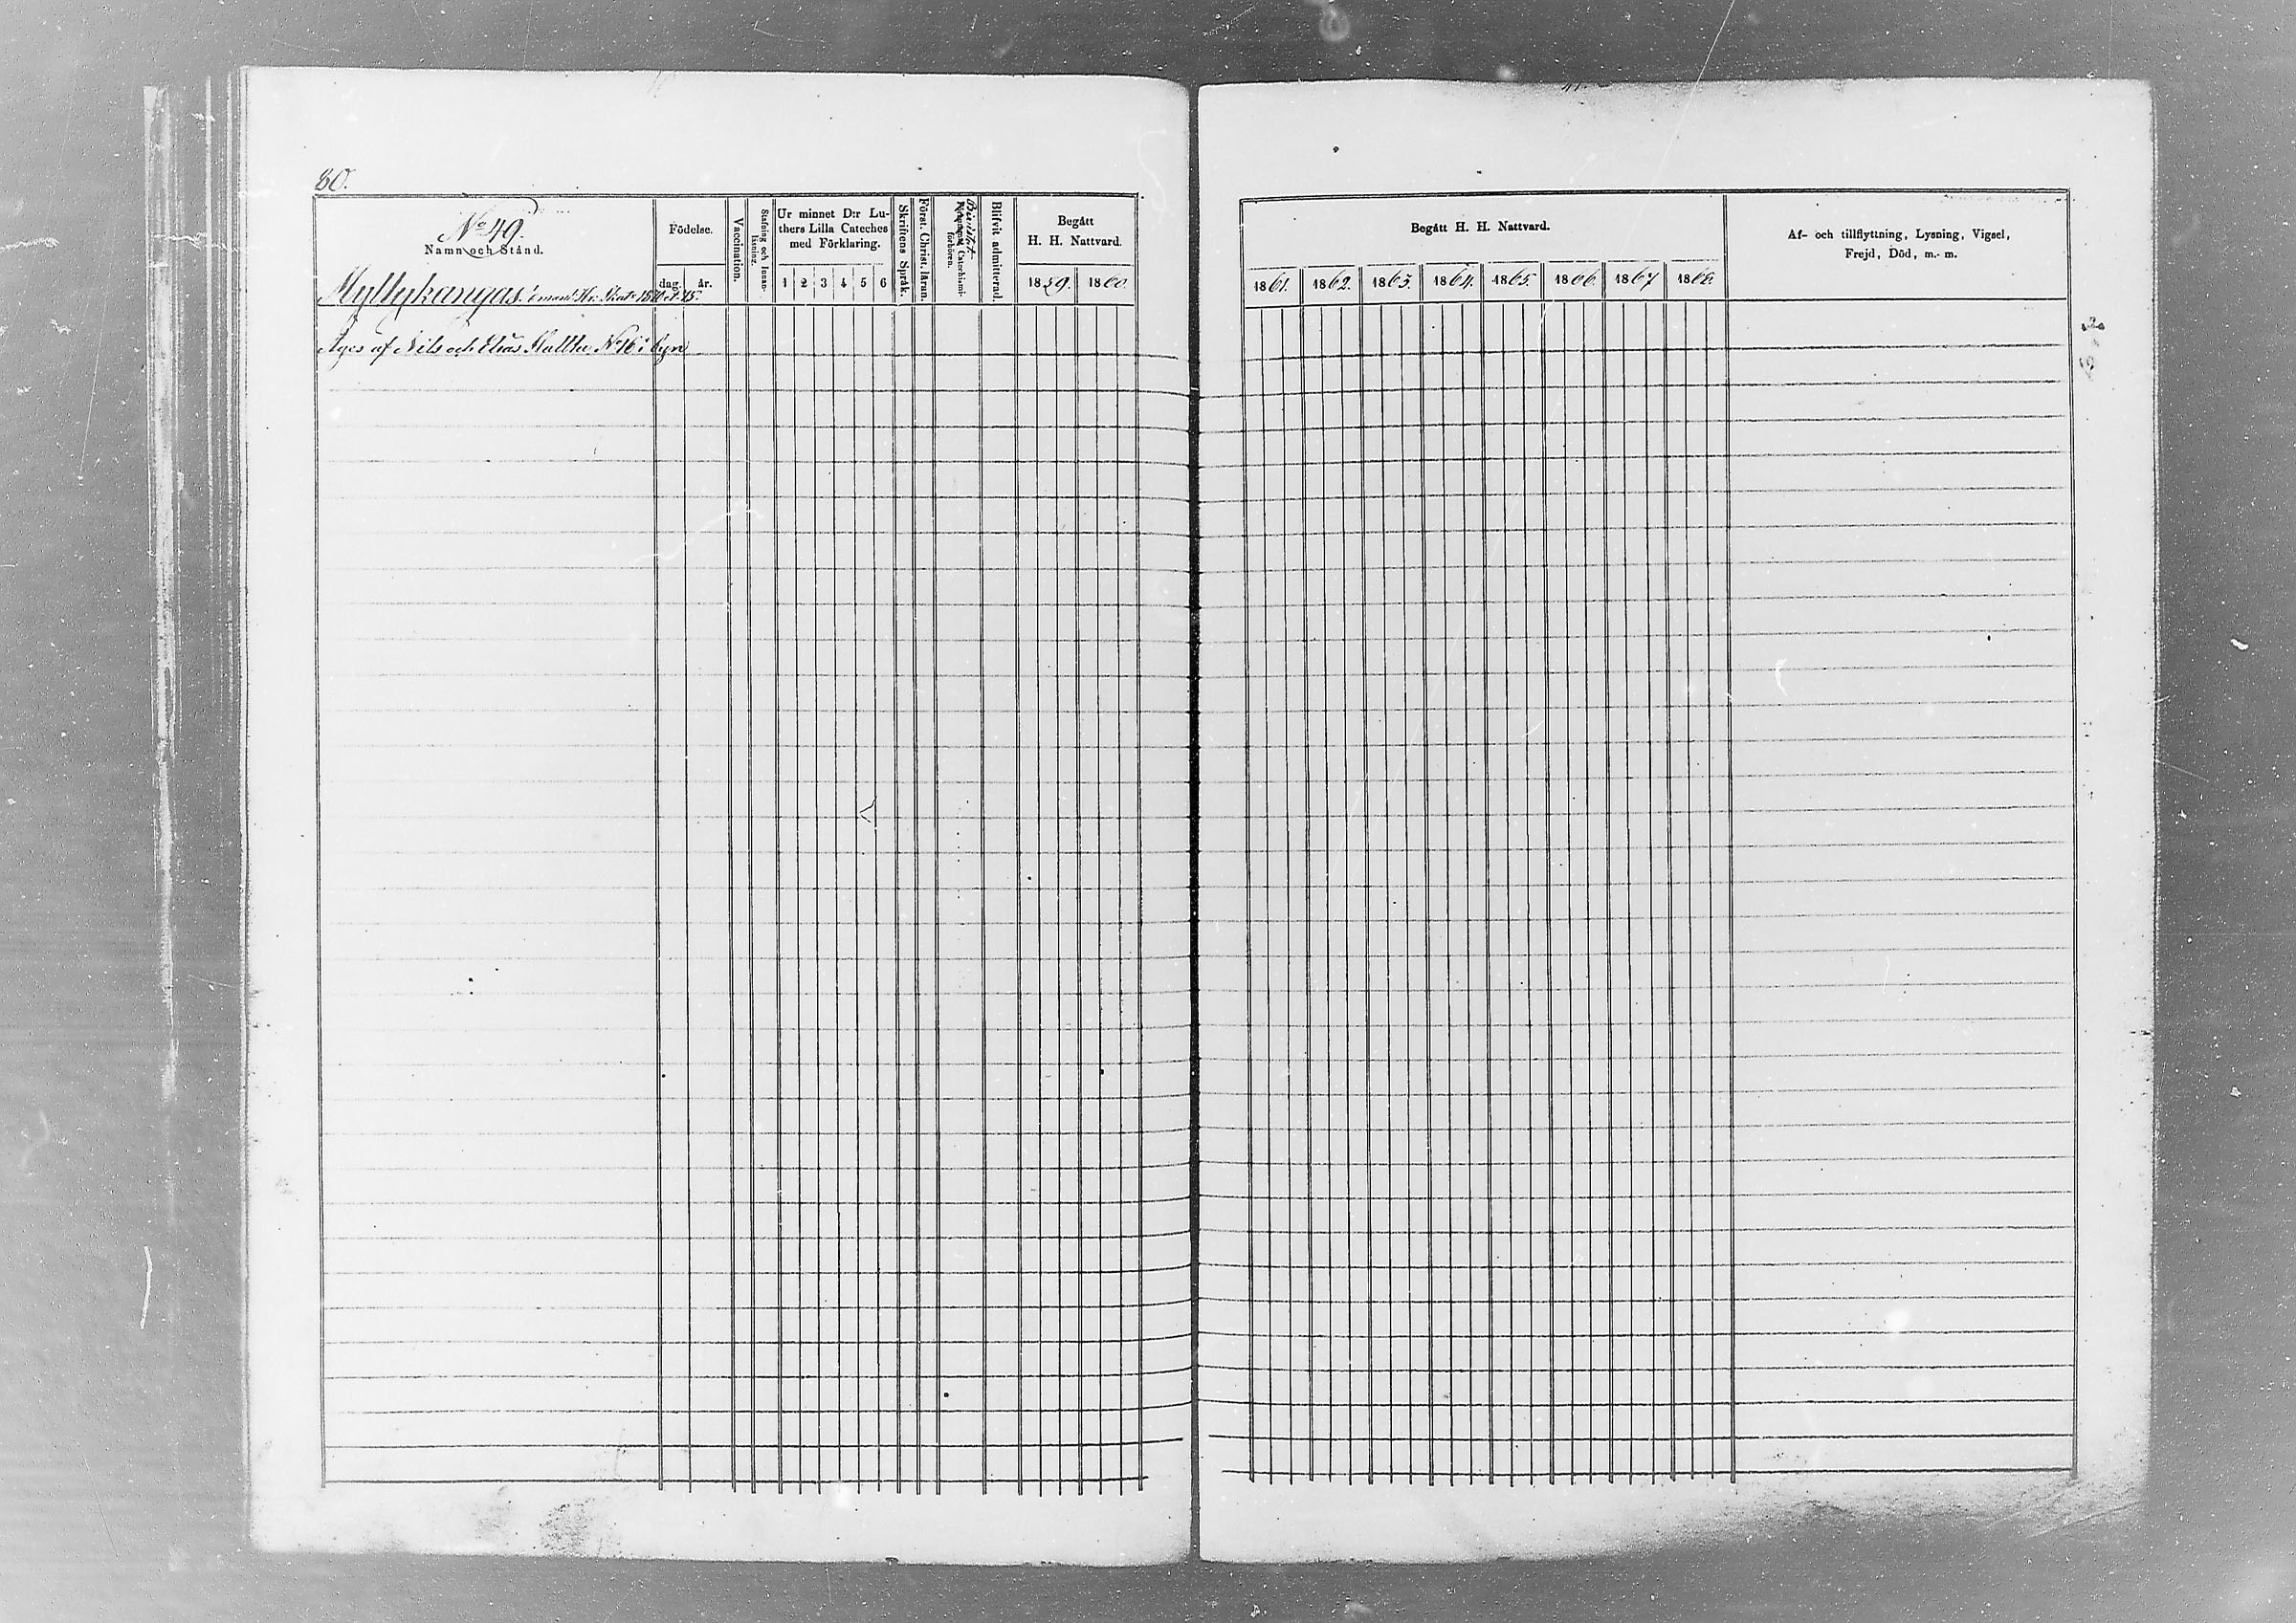 80.
No 49.
Namn och Stånd.
Myllykangas
Födelse.
dag. år.
Vaccination.
Stafning och Innan-
läsning.
Ur minnet D:r Lu-
thers Lilla Cateches
med Förklaring.
1 2 3 4 5 6
Skriftens Språk.
Först. Christ. läran.
Bevistat
Catechismi-
förhören.
Blifvit admitterad.
Begått
H. H. Nattvard.
1859. 1860.
Äges af Nils och Elias No 16 i byn
Begått H. H. Nattvard.
1861. 1862. 1863. 1864. 1865. 1866. 1867 1868.
Af- och tillflyttning, Lysning, Vigsel,
Frejd, Död, m. m.